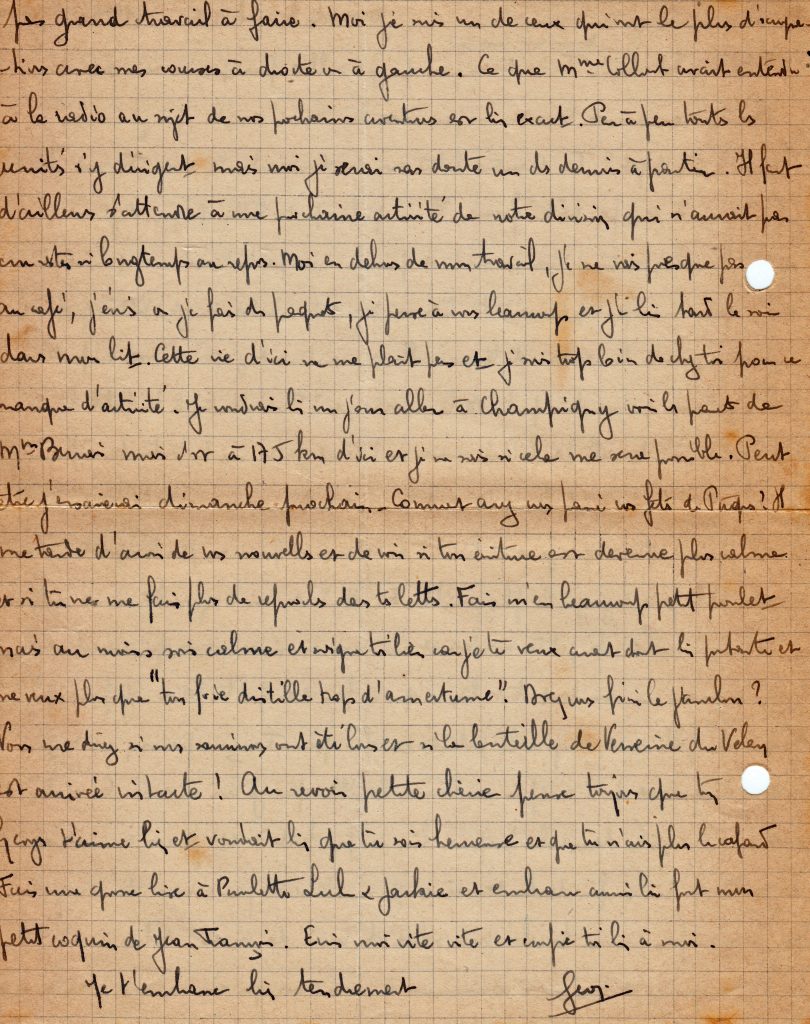 pas grand travail à faire. Moi je suis un de ceux qui ont le plus d'occupa-
-tions avec mes courses à droite ou à gauche. Ce que Mme Collout avait entendu
à la radio au sujet de nos prochaines aventures est bien exact. Peu à peu toutes les
unités s'y dirigent mais moi je serai sans doute un des derniers à partir. Il faut
d'ailleurs s'attendre à une prochaine activité de notre division qui n'aurait pas
si longtemps au repos. Moi en dehors de mon travail, je ne vais presque pas
au café, j'écris ou je fais des paquets, je pense à vous beaucoup et je lis tard le soir
dans mon lit. Cette vie d'ici ne me plait pas et je suis trop loin de chez toi pour ce
manque d'activité. Je voudrais bien un jour aller à Champigny voir les parents de
Mme mais c'est à 175 km d'ici et je ne sais si cela me sera possible. Peut
être j'essaierai dimanche prochain. Comment avez vous passé vos fêtes de Pâques? Il
me tarde d'avoir de vos nouvelles et de voir si ton écriture est devenue plus calme
et si tu ne me fais plus de reproches dans tes lettres. Fais m'en beaucoup petit poulet
mais au moins sois calme et soigne toi bien car je te veux avant tout bien portante et
ne veux plus que "ton foie distille trop d'amertume". Avez vous fini le jambon?
Vous me direz si vos ont été bons et si la bouteille de Verveine du Velay
est arrivée intacte! Au revoir petite chérie pense toujours que ton
Geogs t'aime bien et voudrait bien que tu sois heureuse et que tu n'aies plus le cafard
Fais une grosse bise à Paulette Lul & Jackie et embrasse aussi bien fort mon
petit coquin de Jean François. Ecris moi vite vite et confie toi bien à moi.
Je t'embrasse bien tendrement Geog.